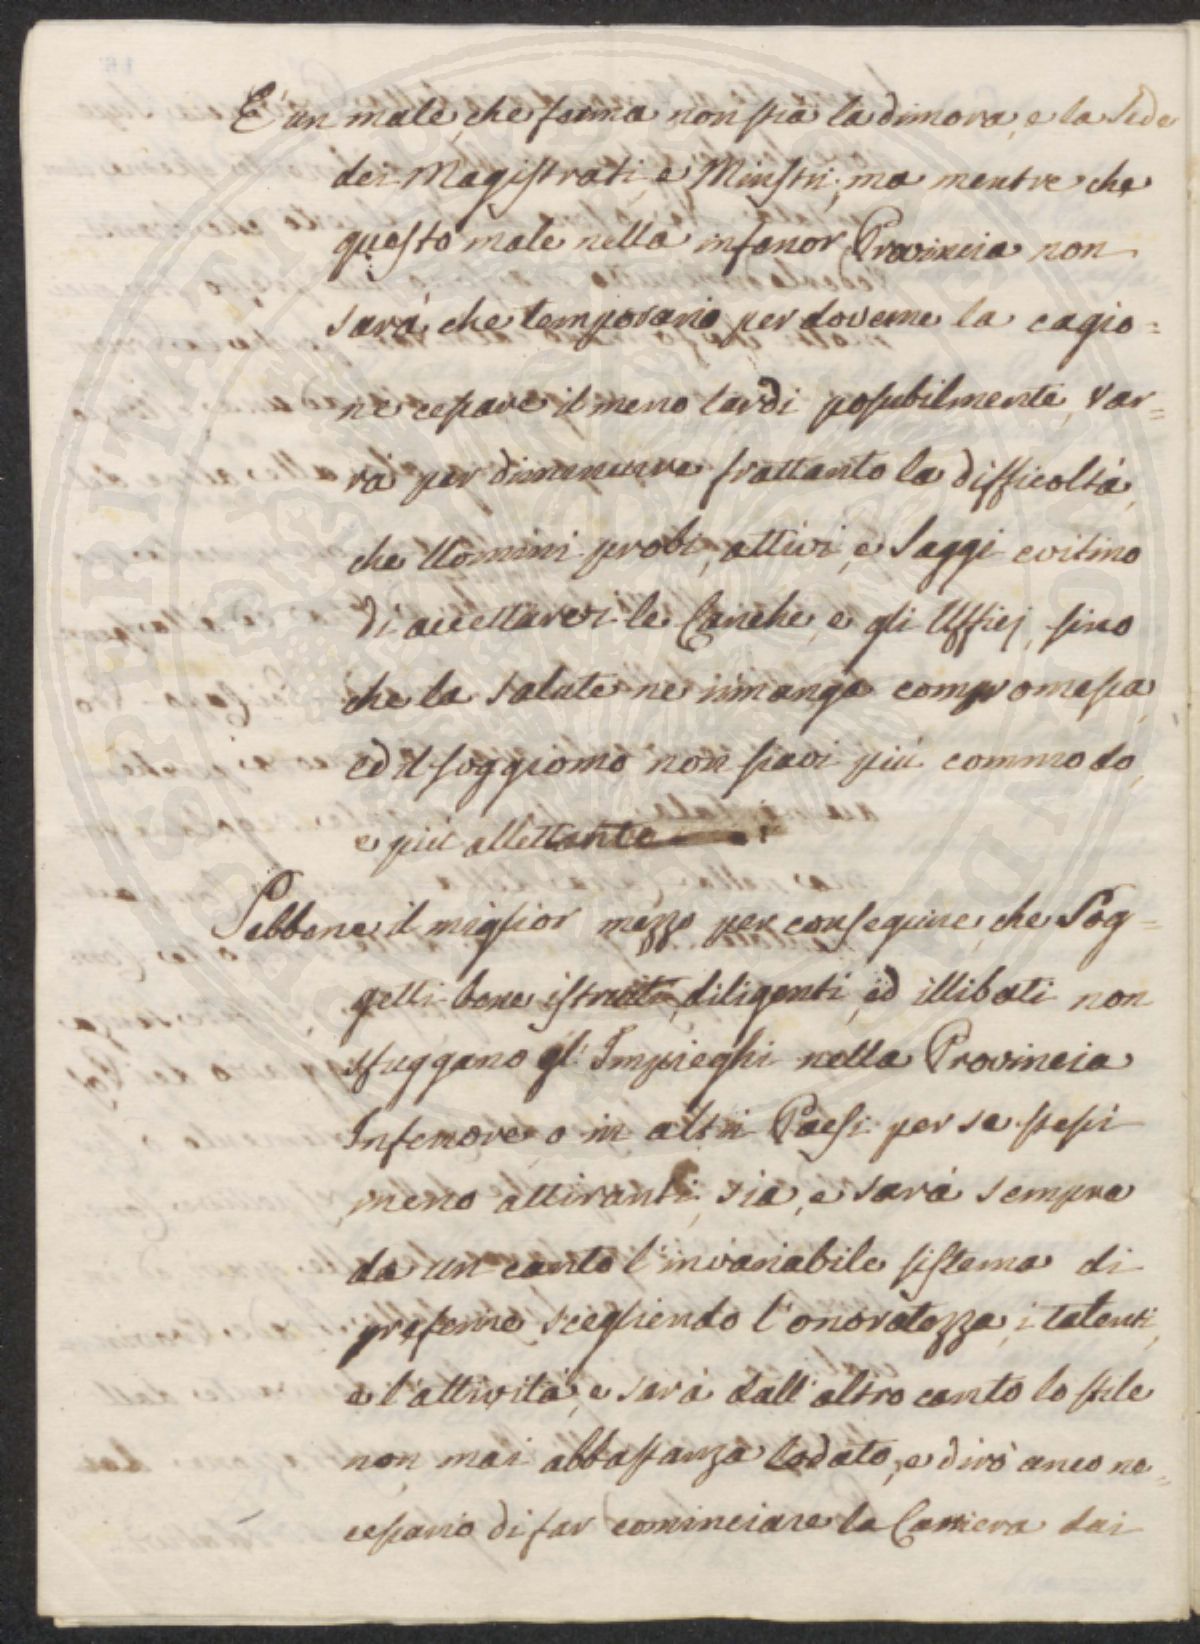 E' un male, che ferma non stia la dimora, e la Sede
dei Magistrati, e Ministri; ma mentre che
questo male nella inferior Provincia non
sarà, che temporario per doverne la cagio=
ne cessare il meno tardi possibilmente, var=
rà per diminuire frattanto la difficoltà,
che Uomini probi, attivi, e Saggi evitino
di accettarvi le Cariche, e gli Ufficj, sino
che la salute ne rimanga compromessa,
ed il soggiorno non siavi più commodo,
e più allettante
Sebbene il miglior mezzo per conseguire, che Sog=
getti bene istruiti, diligenti, ed illibati non
sfuggano gl' Impieghi nella Provincia
Inferiore, o in altri Paesi per se stessi
meno attiranti, sia, e sarà sempre
da un canto l'invariabile sistema di
preferire, scegliendo l'onoratezza, i talenti,
e l'attività, e sarà dall'altro canto lo stile
non mai abbastanza lodato, e dirò anco ne=
cessario di far cominciare la Carriera dai